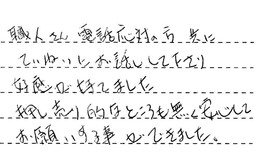 職人さん 電話応対の方 共に
ていねいにお話ししてくださり
好感が持てました
押し売り的なところも無く安心して
お願いする事ができました。